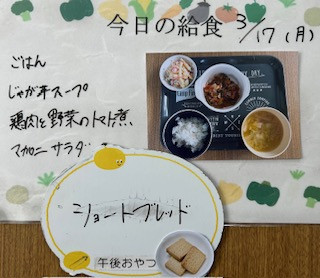 今日の給食 3/17(月)
ごはん
じゃが芋スープ
鶏肉と野菜のトマト煮
マカロニサラダ
ショートブレッド
午後おやつ